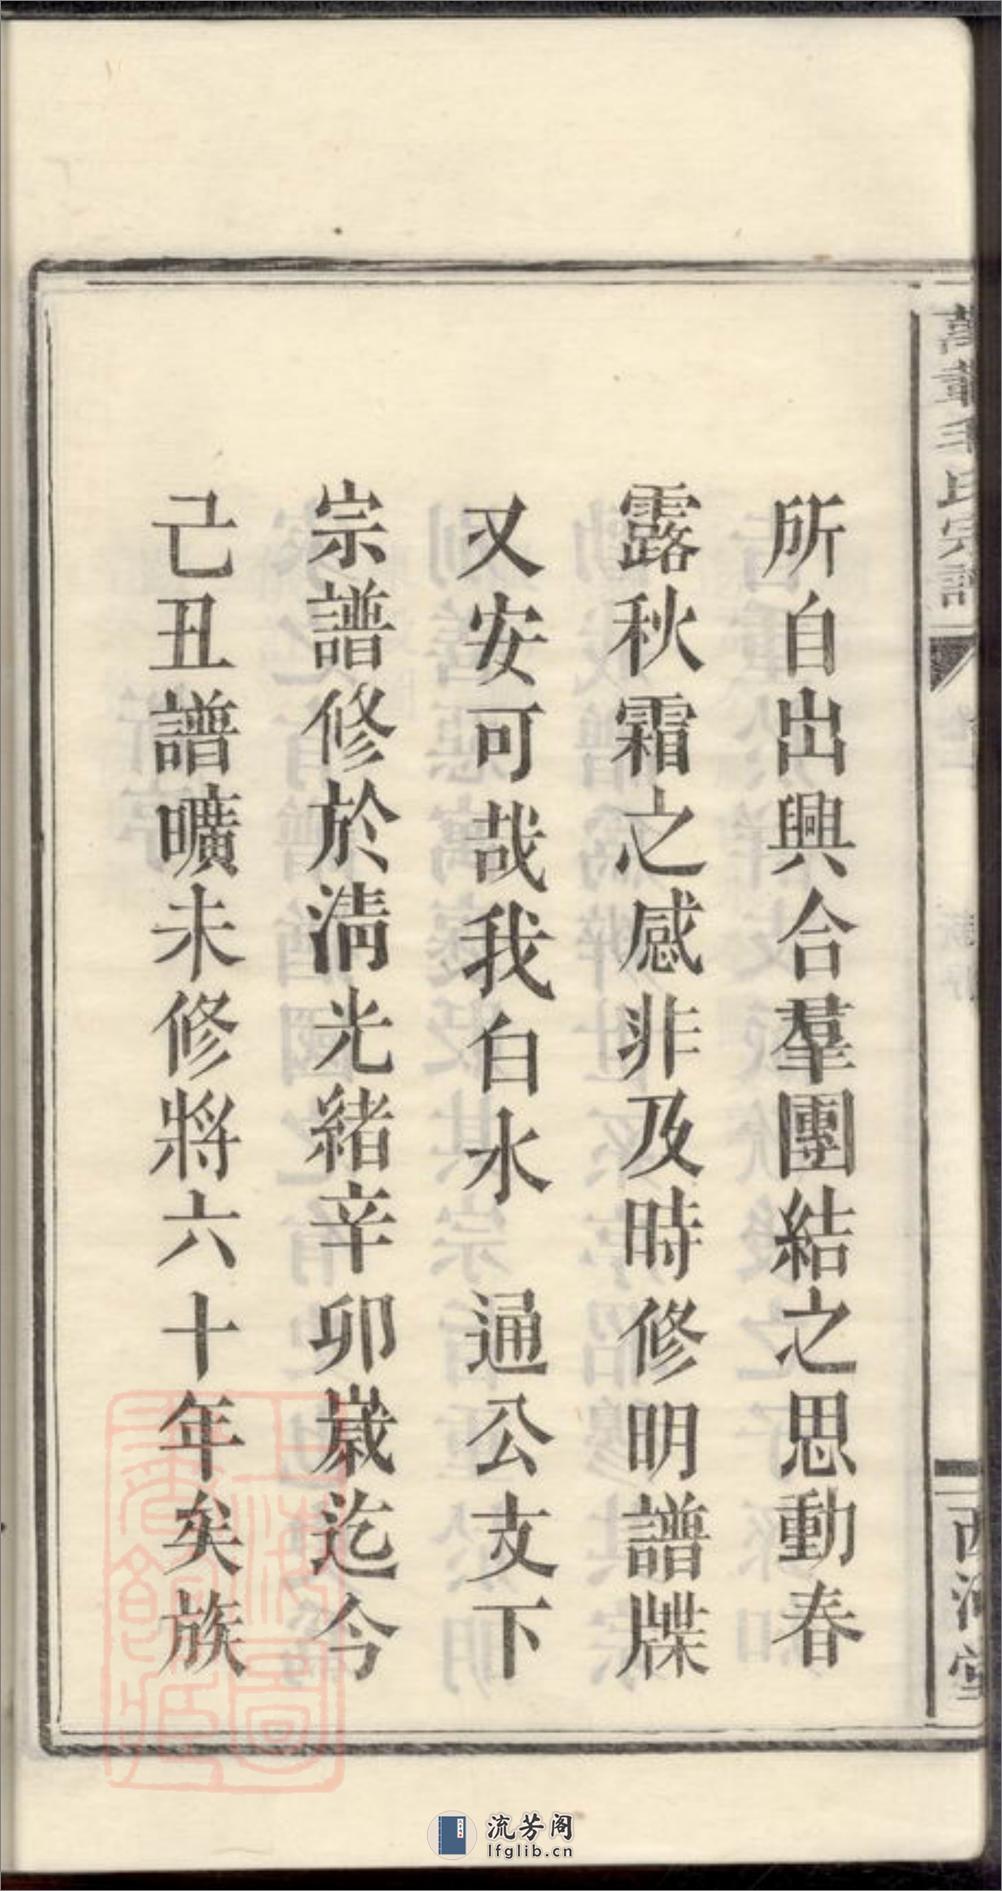 所自出興合羣團結之思動春
露秋霜之感非及時修明譜牒
又安可哉我白水　通公支下
宗譜修於清光緒辛卯歲迄今
己丑譜曠未修將六十年矣族
萬載毛氏宗譜
西河堂
流芳阁
lfglib.cn